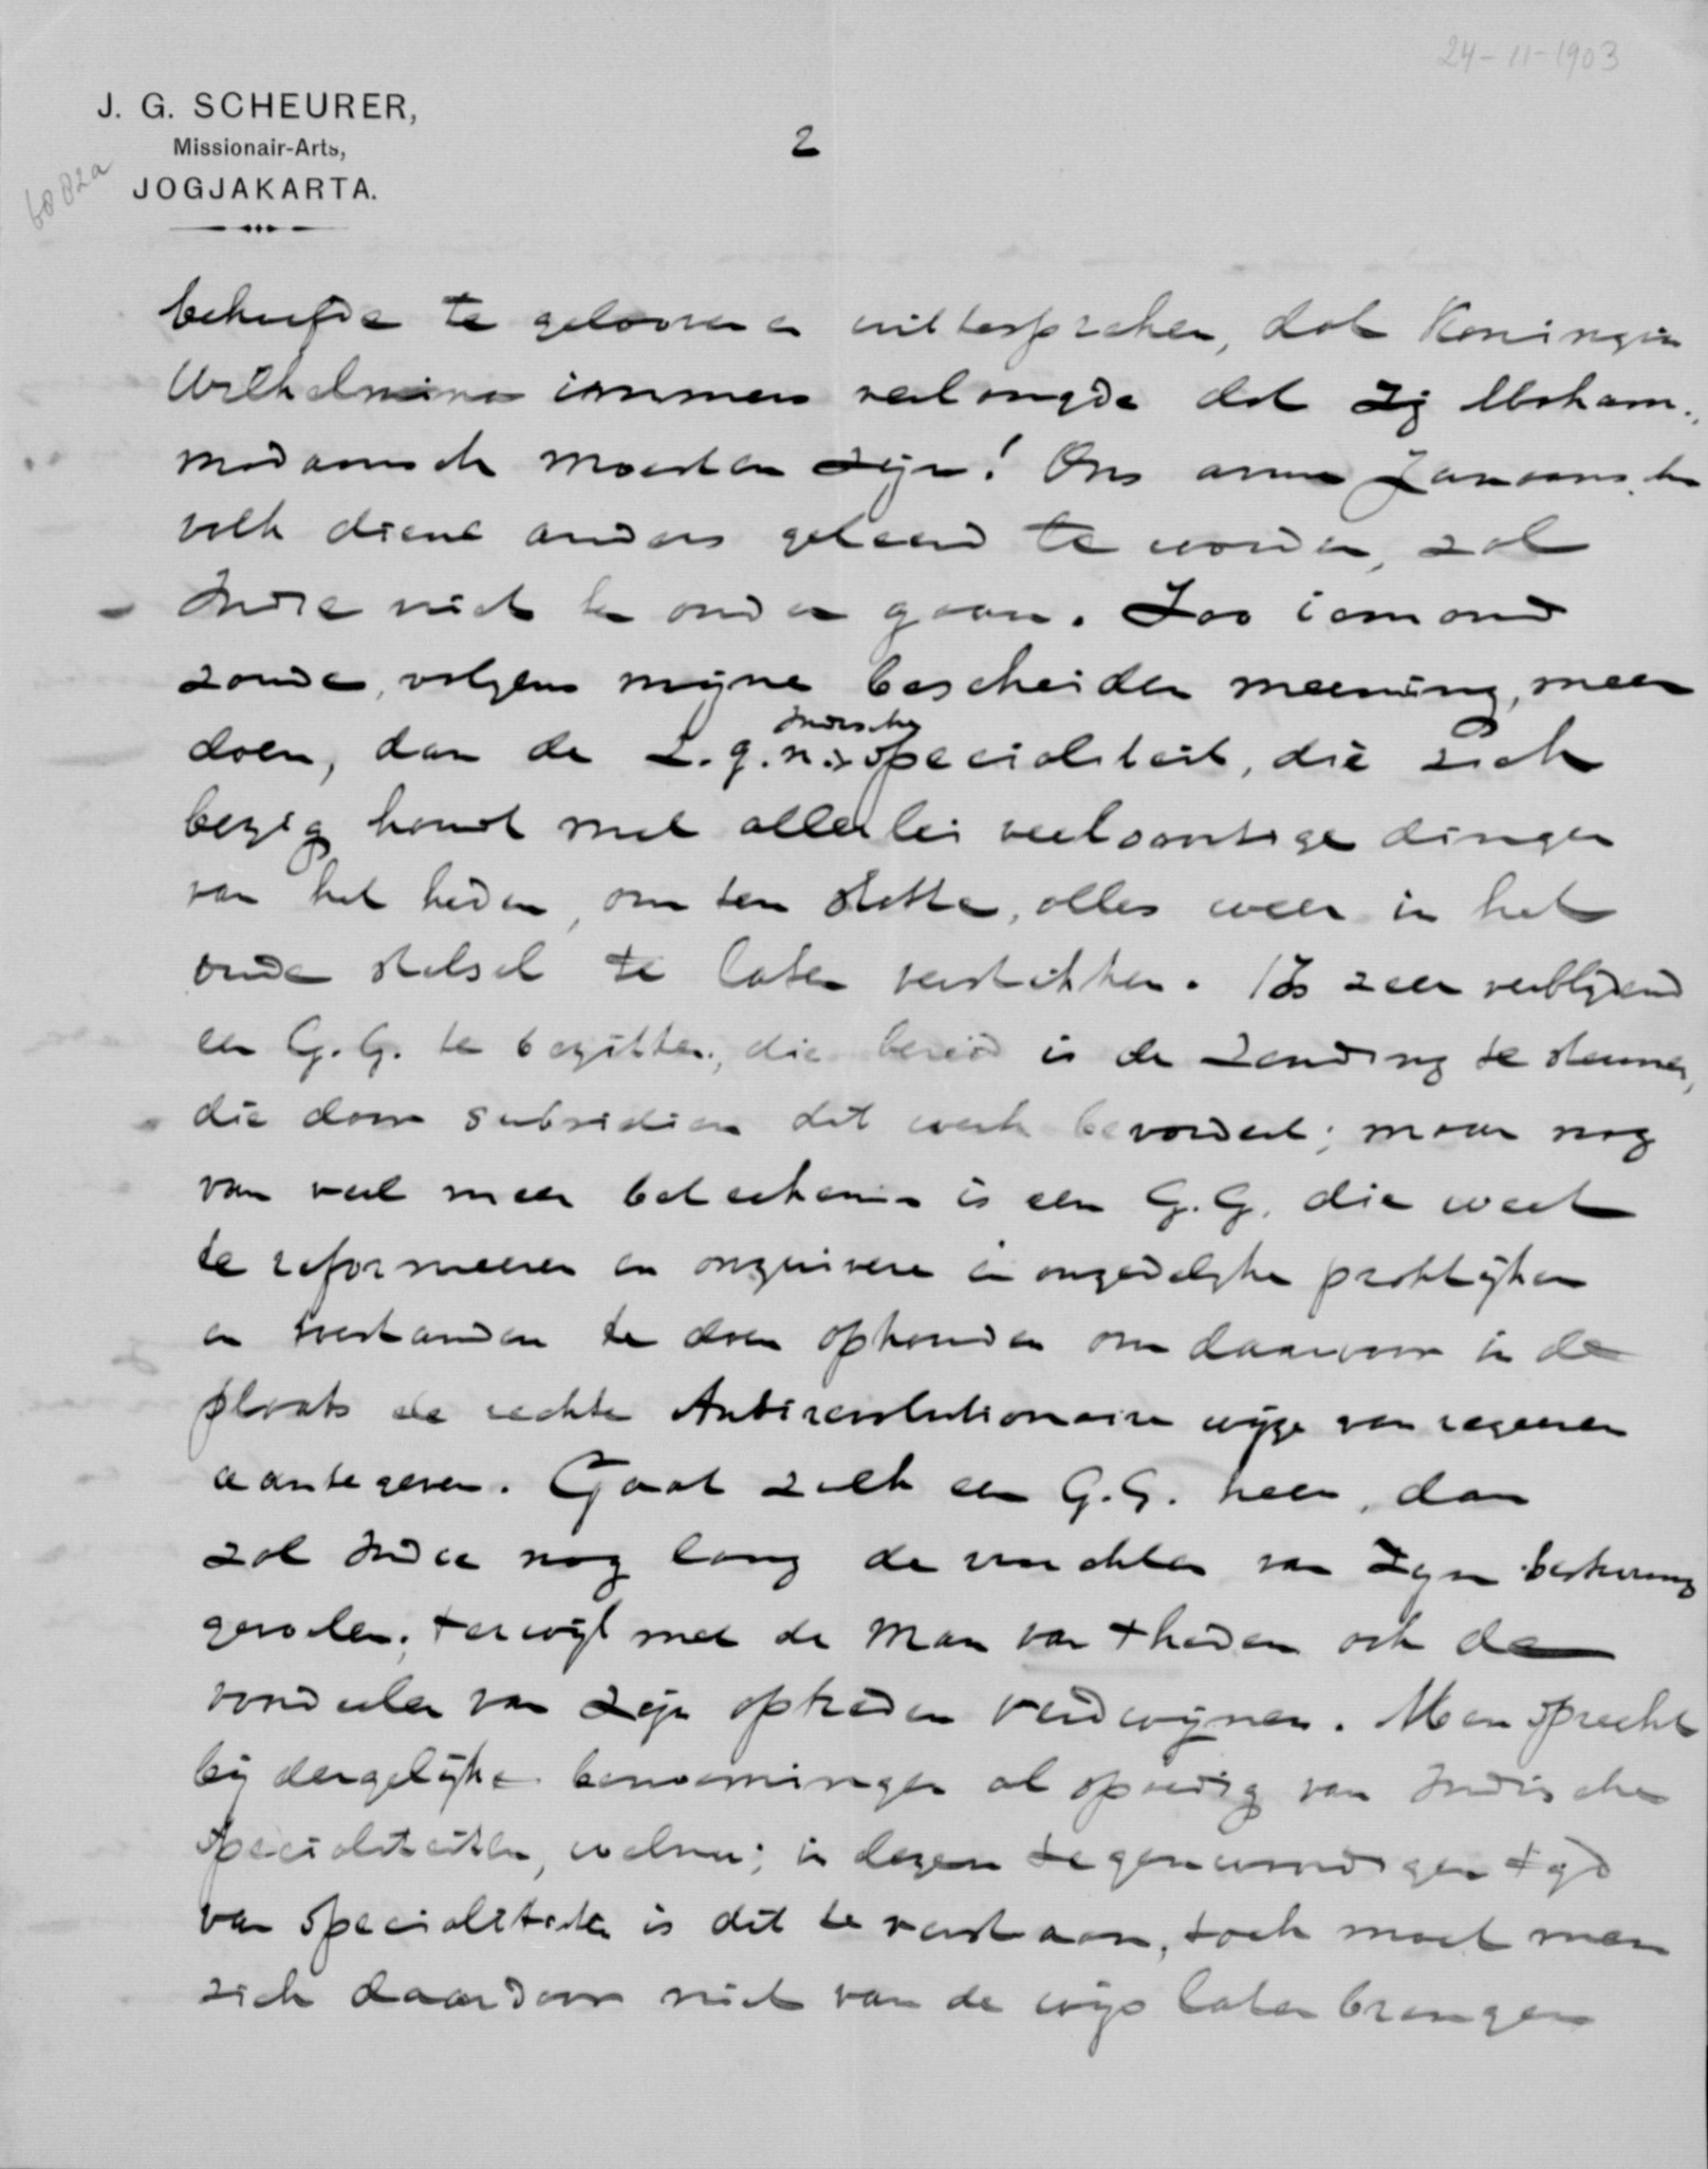 24-11-1903
J. G. SCHEURER,
Missionair-Arts,
JOGJAKARTA.
6082a
2
behoefde te gelooven en uittespreken, dat Koningin
Wilhelmina immers verlangde dat zij Moham-
medaansch moesten zijn! Ons arme Javaansche
volk diene anders geleerd te worden, zal
Indië niet ten onder gaan. Zoo iemand
zoude, volgens mijne bescheiden meening, meer
doen, dan de z.g.n. Indische specialiteit, die zich
bezig houdt met allerlei veelsoortige dingen
van het heden, om ten slotte, alles weer in het
oude stelsel te laten verstikken. 't Is zeer verblijdend
een G.G. te bezitten, die bereid is de Zending te steunen,
die door subsidien dit werk bevordert; maar nog
van veel meer beteekenis is een G.G. die weet
te reformeeren en onzuivere en onzedelijke praktijken
en toestanden te doen ophouden om daarvoor in de
plaats de rechte Antirevolutionaire wijze van regeeren
aantegeven. Gaat zulk een G.G. heen, dan
zal Indië nog lang de vruchten van zijn besturing
gevoelen; terwijl met de man van 't heden ook de
voordeelen van zijn optreden verdwijnen. Men spreekt
bij dergelijke benoemingen al spoedig van Indische
specialiteiten, welnu; in dezen tegenwoordigen tijd
van specialiteiten is dit te verstaan, toch moet men
zich daardoor niet van de wijs laten brengen